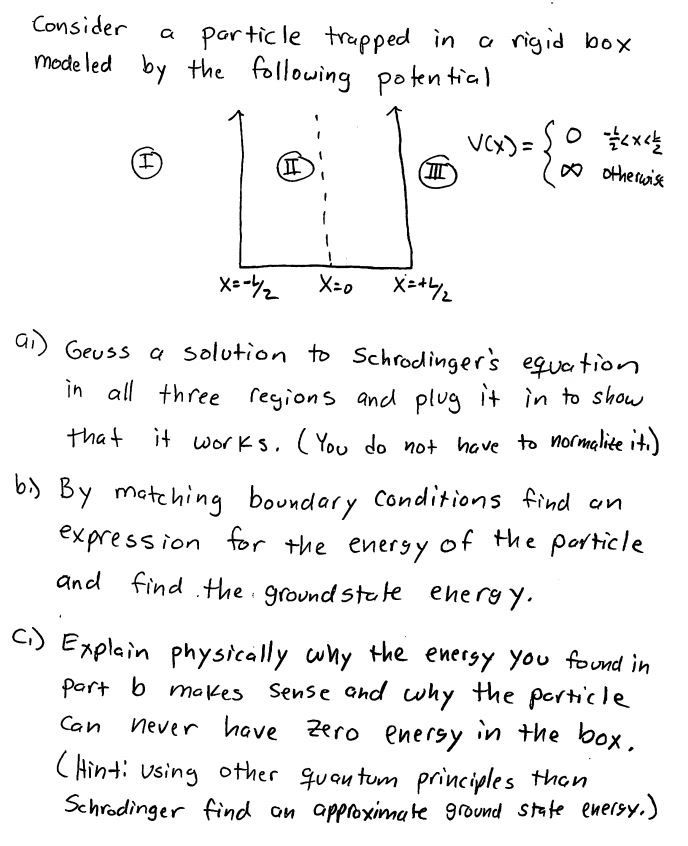 Consider a particle trapped in a rigid box
modeled by the following potential
I II III V(x) = { 0 -L/2<x<L/2
∞ otherwise
x=-L/2 x=0 x=+L/2
a.) Geuss a solution to Schrodinger's equation
in all three regions and plug it in to show
that it works. (You do not have to normalize it.)
b.) By matching boundary conditions find an
expression for the energy of the particle
and find the ground state energy.
c.) Explain physically why the energy you found in
part b makes sense and why the particle
can never have zero energy in the box.
(Hint: using other quantum principles than
Schrodinger find an approximate ground state energy.)